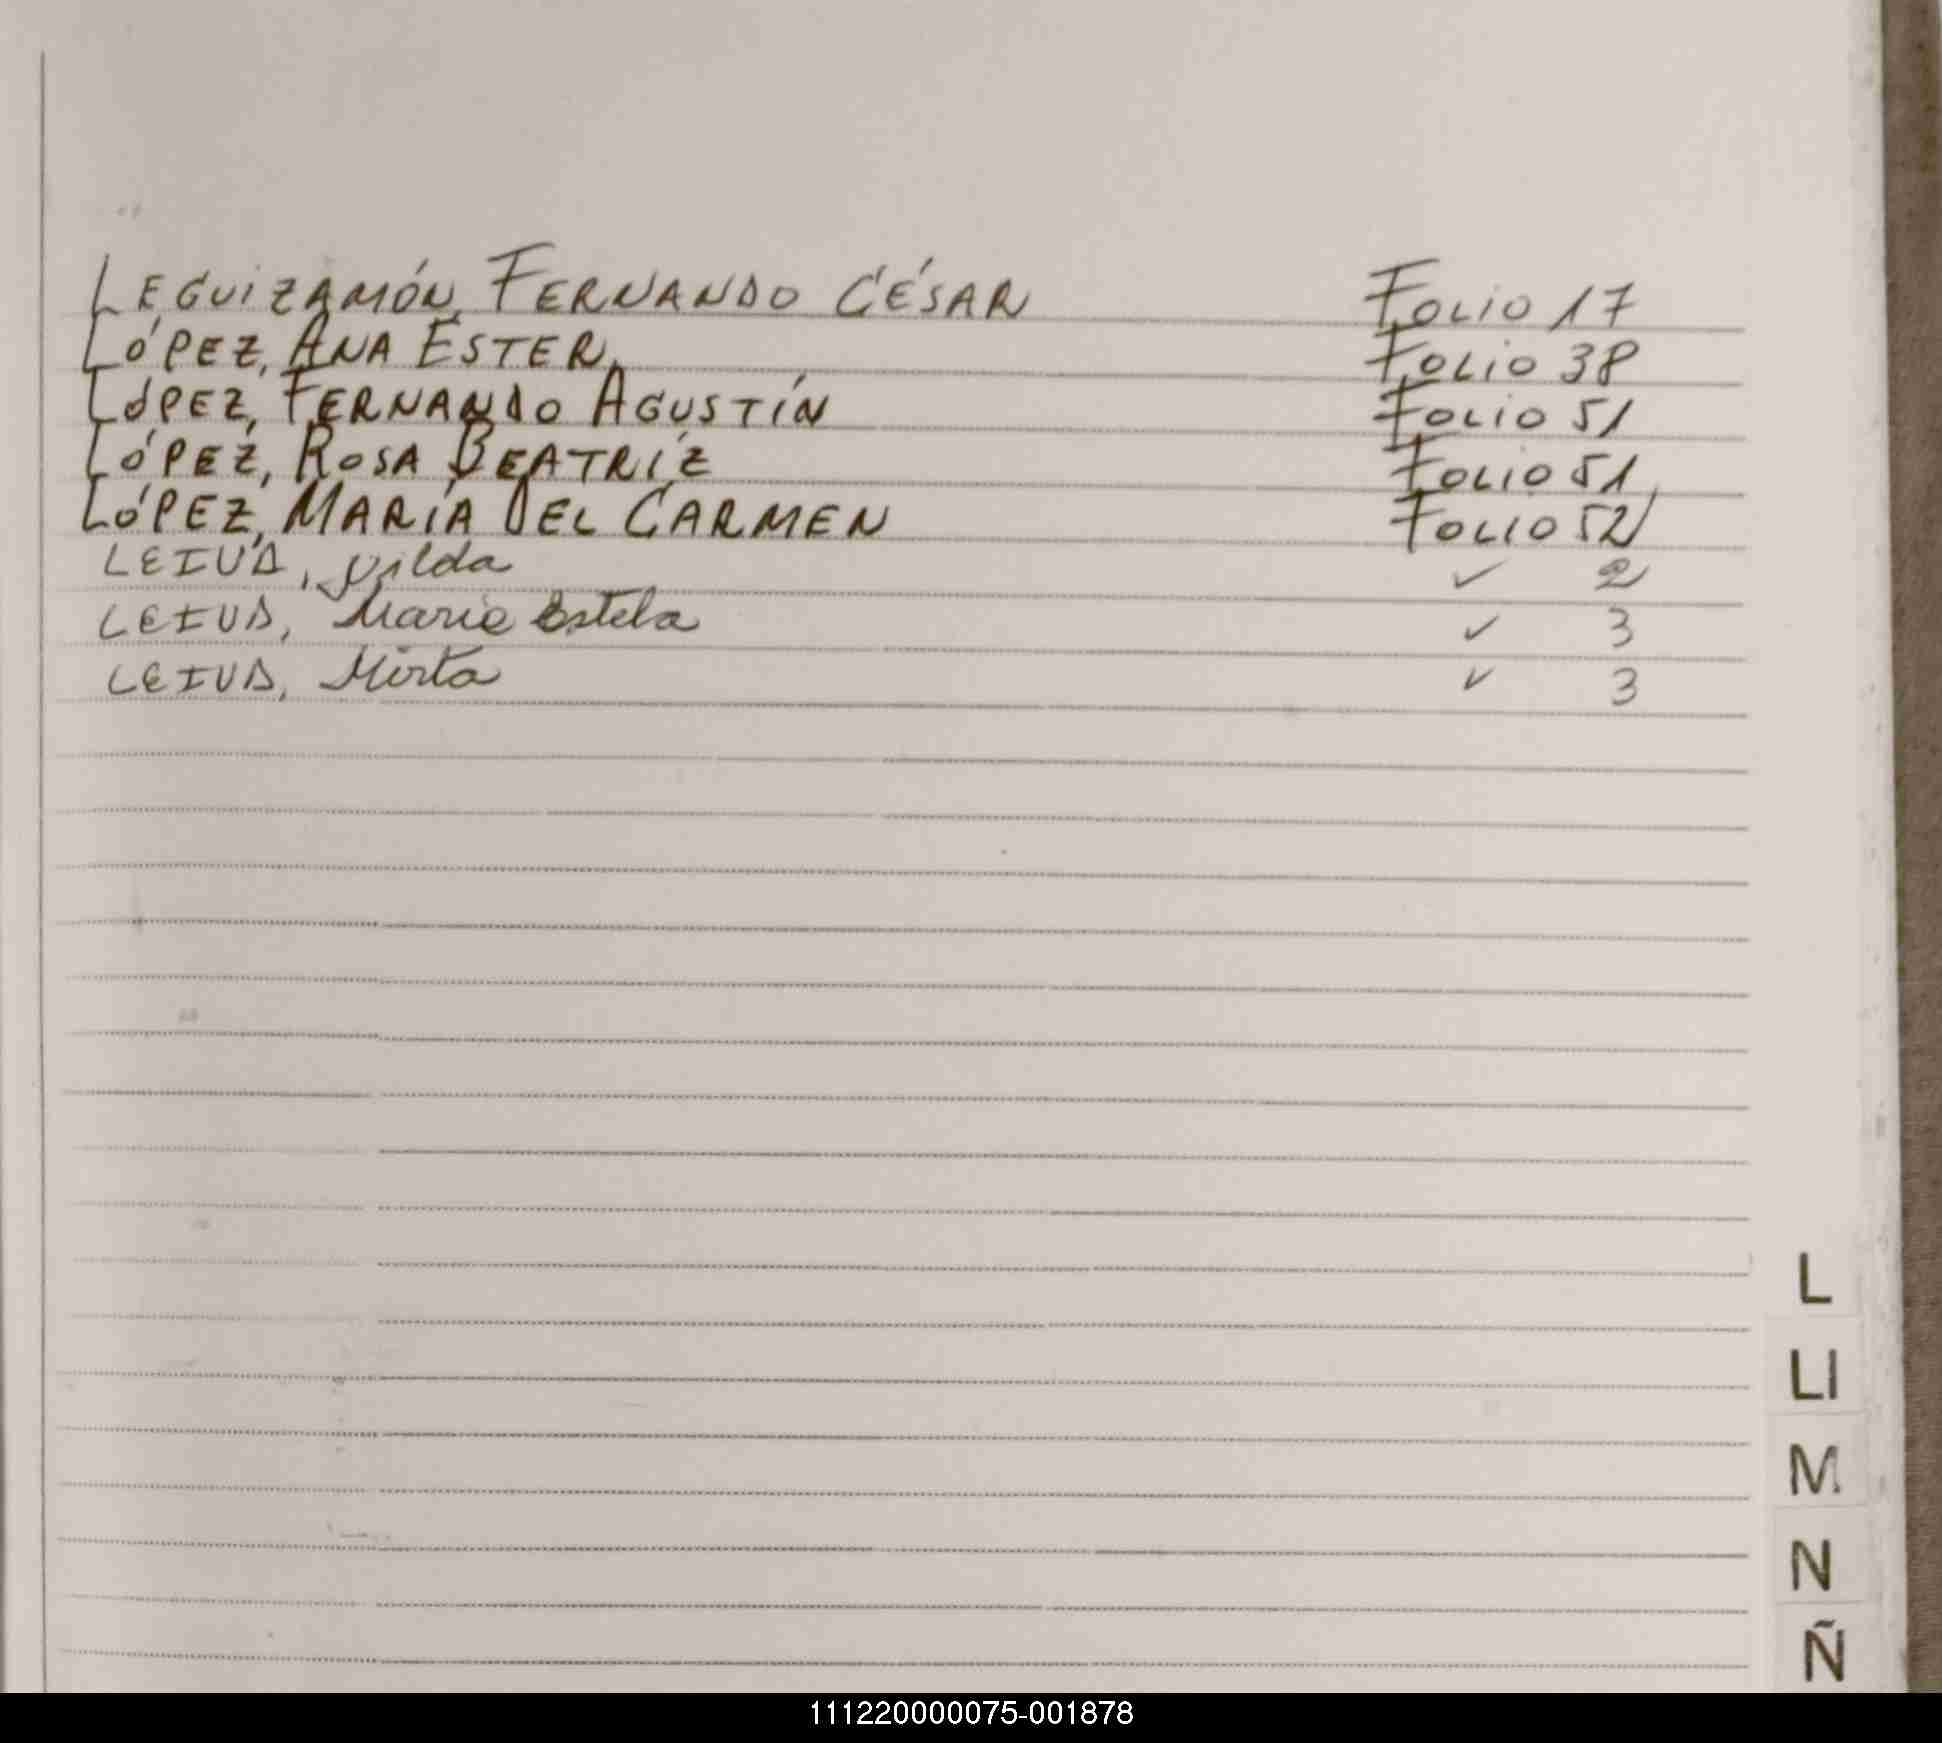 LEGUIZAMÓN, FERNANDO CÉSAR Folio 17
LÓPEZ, ANA ESTER Folio 38
LÓPEZ, FERNANDO AGUSTÍN Folio 51
LÓPEZ, ROSA BEATRÍZ Folio 51
LÓPEZ, MARÍA DEL CARMEN Folio 52
LEIVA, Nilda ✓ 2
LEIVA, Maria Estela ✓ 3
LEIVA, Mirta ✓ 3
L
Ll
M
N
Ñ
111220000075-001878